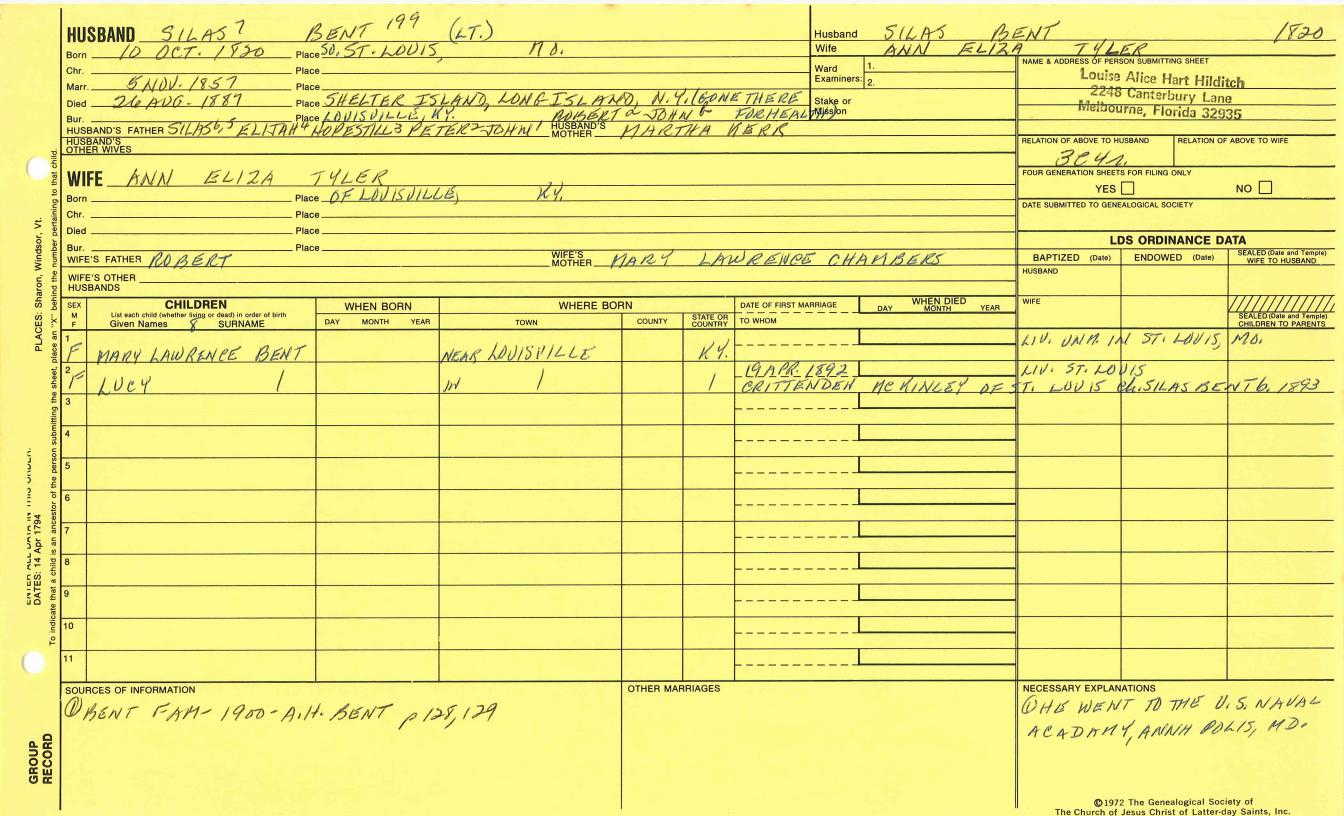 HUSBAND SILAS 7 BENT 199 (LT.)
Born 10 OCT. 1820 Place SO. ST. LOUIS, MO.
Chr. Place
Marr. 5 NOV. 1857 Place
Died 26 AUG. 1887 Place SHELTER ISLAND, LONG ISLAND, N.Y. (GONE THERE
Bur. Place LOUISVILLE, KY. FOR HEALTH)
HUSBAND'S FATHER SILAS 6, 5 ELIJAH 4 HOPESTILL 3 PETER 2 JOHN 1 ROBERT a JOHN b HUSBAND'S MOTHER MARTHA KERR
HUSBAND'S OTHER WIVES
WIFE ANN ELIZA TYLER
Born Place OF LOUISVILLE, KY.
Chr. Place
Died Place
Bur. Place
WIFE'S FATHER ROBERT WIFE'S MOTHER MARY LAWRENCE CHAMBERS
WIFE'S OTHER HUSBANDS
Husband SILAS BENT 1820
Wife ANN ELIZA TYLER
Ward Examiners: 1. 2.
Stake or Mission
NAME & ADDRESS OF PERSON SUBMITTING SHEET
Louise Alice Hart Hilditch
2248 Canterbury Lane
Melbourne, Florida 32935
RELATION OF ABOVE TO HUSBAND RELATION OF ABOVE TO WIFE
3C4r.
FOUR GENERATION SHEETS FOR FILING ONLY
YES NO
DATE SUBMITTED TO GENEALOGICAL SOCIETY
LDS ORDINANCE DATA
BAPTIZED (Date) ENDOWED (Date) SEALED (Date and Temple) WIFE TO HUSBAND
HUSBAND
WIFE
SEALED (Date and Temple) CHILDREN TO PARENTS
SEX M F CHILDREN WHEN BORN WHERE BORN DATE OF FIRST MARRIAGE WHEN DIED
List each child (whether living or dead) in order of birth
Given Names 8 SURNAME DAY MONTH YEAR TOWN COUNTY STATE OR COUNTRY TO WHOM DAY MONTH YEAR
1 F MARY LAWRENCE BENT NEAR LOUISVILLE KY. LIV. UNM. IN ST. LOUIS, MO.
2 19 APR. 1892 LIV. ST. LOUIS
F LUCY " CRITTENDEN McKINLEY OF ST. LOUIS Ch. SILAS BENT b. 1893
3
4
5
6
7
8
9
10
11
SOURCES OF INFORMATION
① BENT FAM- 1900- A.H. BENT p 128, 129
OTHER MARRIAGES
NECESSARY EXPLANATIONS
① HE WENT TO THE U.S. NAVAL
ACADAMY, ANNAPOLIS, MD.
©1972 The Genealogical Society of
The Church of Jesus Christ of Latter-day Saints, Inc.
PLACES: Sharon, Windsor, Vt.
DATES: 14 Apr 1794
To indicate that a child is an ancestor of the person submitting the sheet, place an "X" behind the number pertaining to that child.
GROUP
RECORD